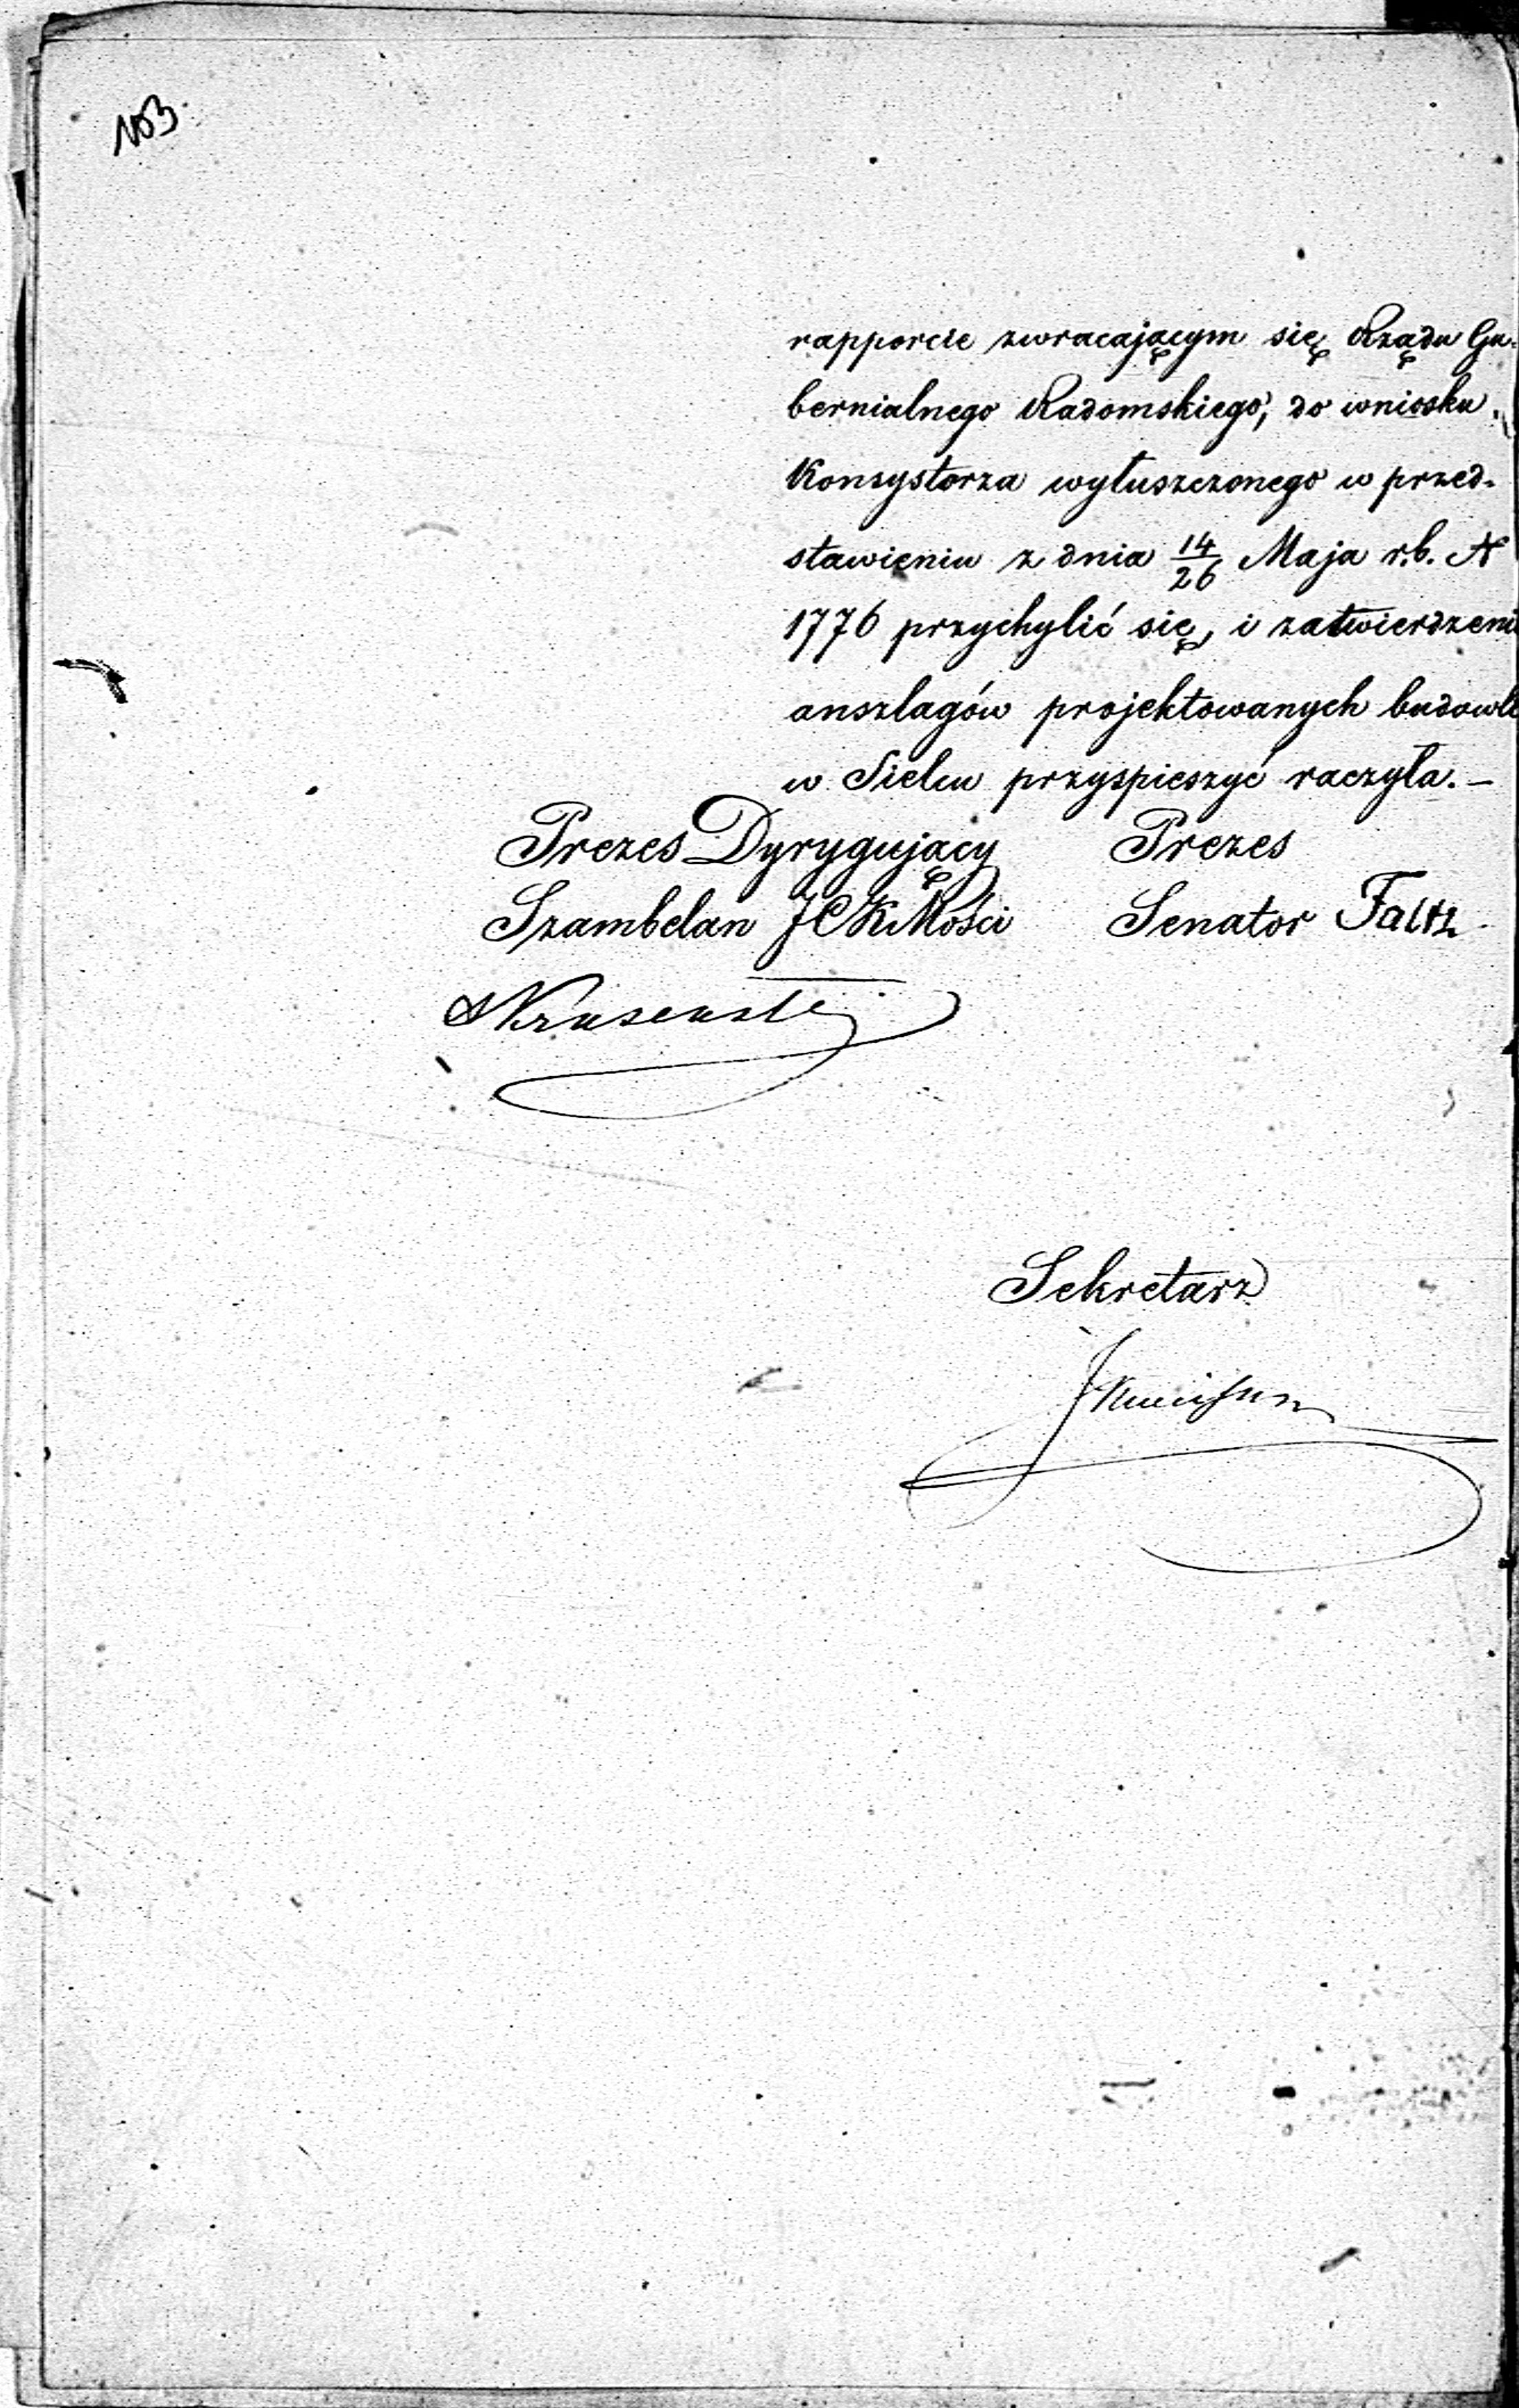 103
rapporcie zwracającym się Rządu Gu-
bernialnego Radomskiego, do wniosku
Konsystorza wyłuszczonego w przed-
stawieniu z dnia 14/26 Maja r.b. N
1776 przychylić się, i zatwierdzeni
anszlagów projektowanych budowli
w Sielcu przyspieszyć raczyła.—
Prezes Dyrygujący Prezes
Szambelan JCKMości Senator Faltz
Sekretarz